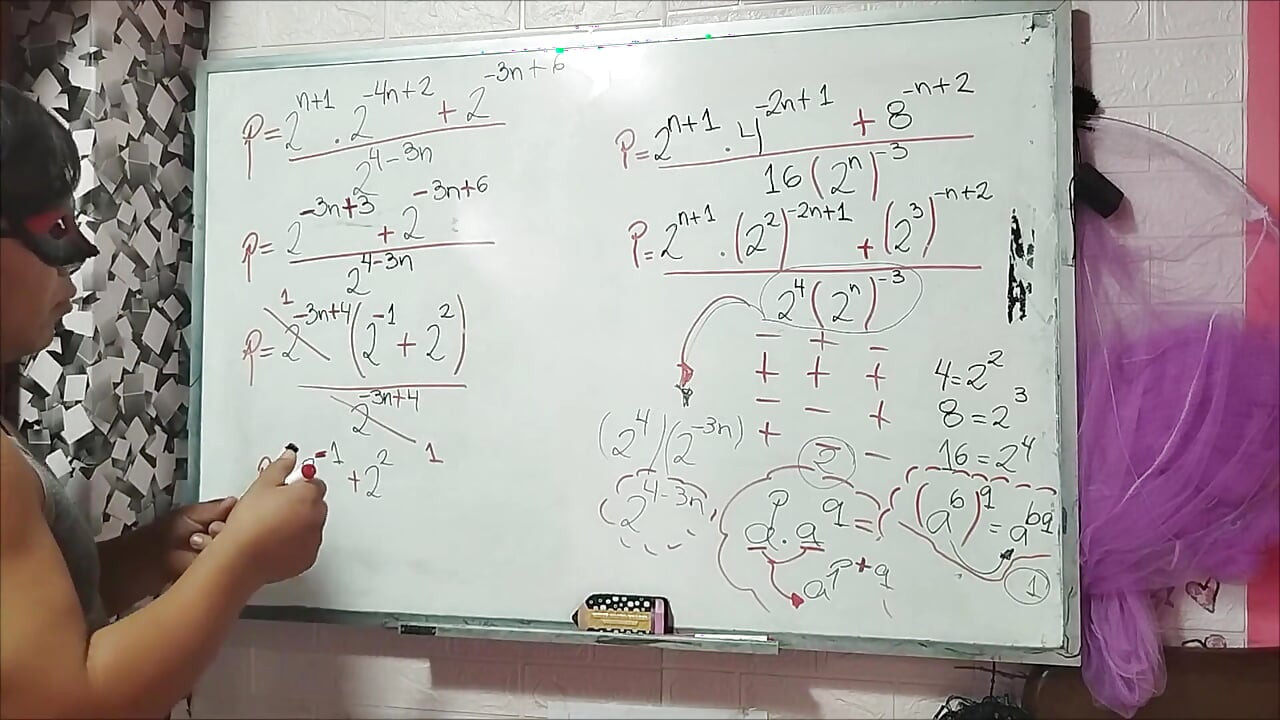 P = 2^{n+1} . 2^{-4n+2} + 2^{-3n+6}
2^{4-3n}
P = 2^{-3n+3} + 2^{-3n+6}
2^{4-3n}
1
P = 2^{-3n+4} (2^{-1} + 2^{2})
2^{-3n+4}
1
^{-1} + 2^{2}
P = 2^{n+1} . 4^{-2n+1} + 8^{-n+2}
16 (2^{n})^{-3}
P = 2^{n+1} . (2^{2})^{-2n+1} + (2^{3})^{-n+2}
2^{4} (2^{n})^{-3}
- + -
+ + +
- - +
+ - -
(2^{4}) (2^{-3n})
2^{4-3n}
4 = 2^{2}
8 = 2^{3}
16 = 2^{4}
2
a^{p} . a^{q} =
a^{p+q}
(a^{b})^{q} = a^{bq}
1